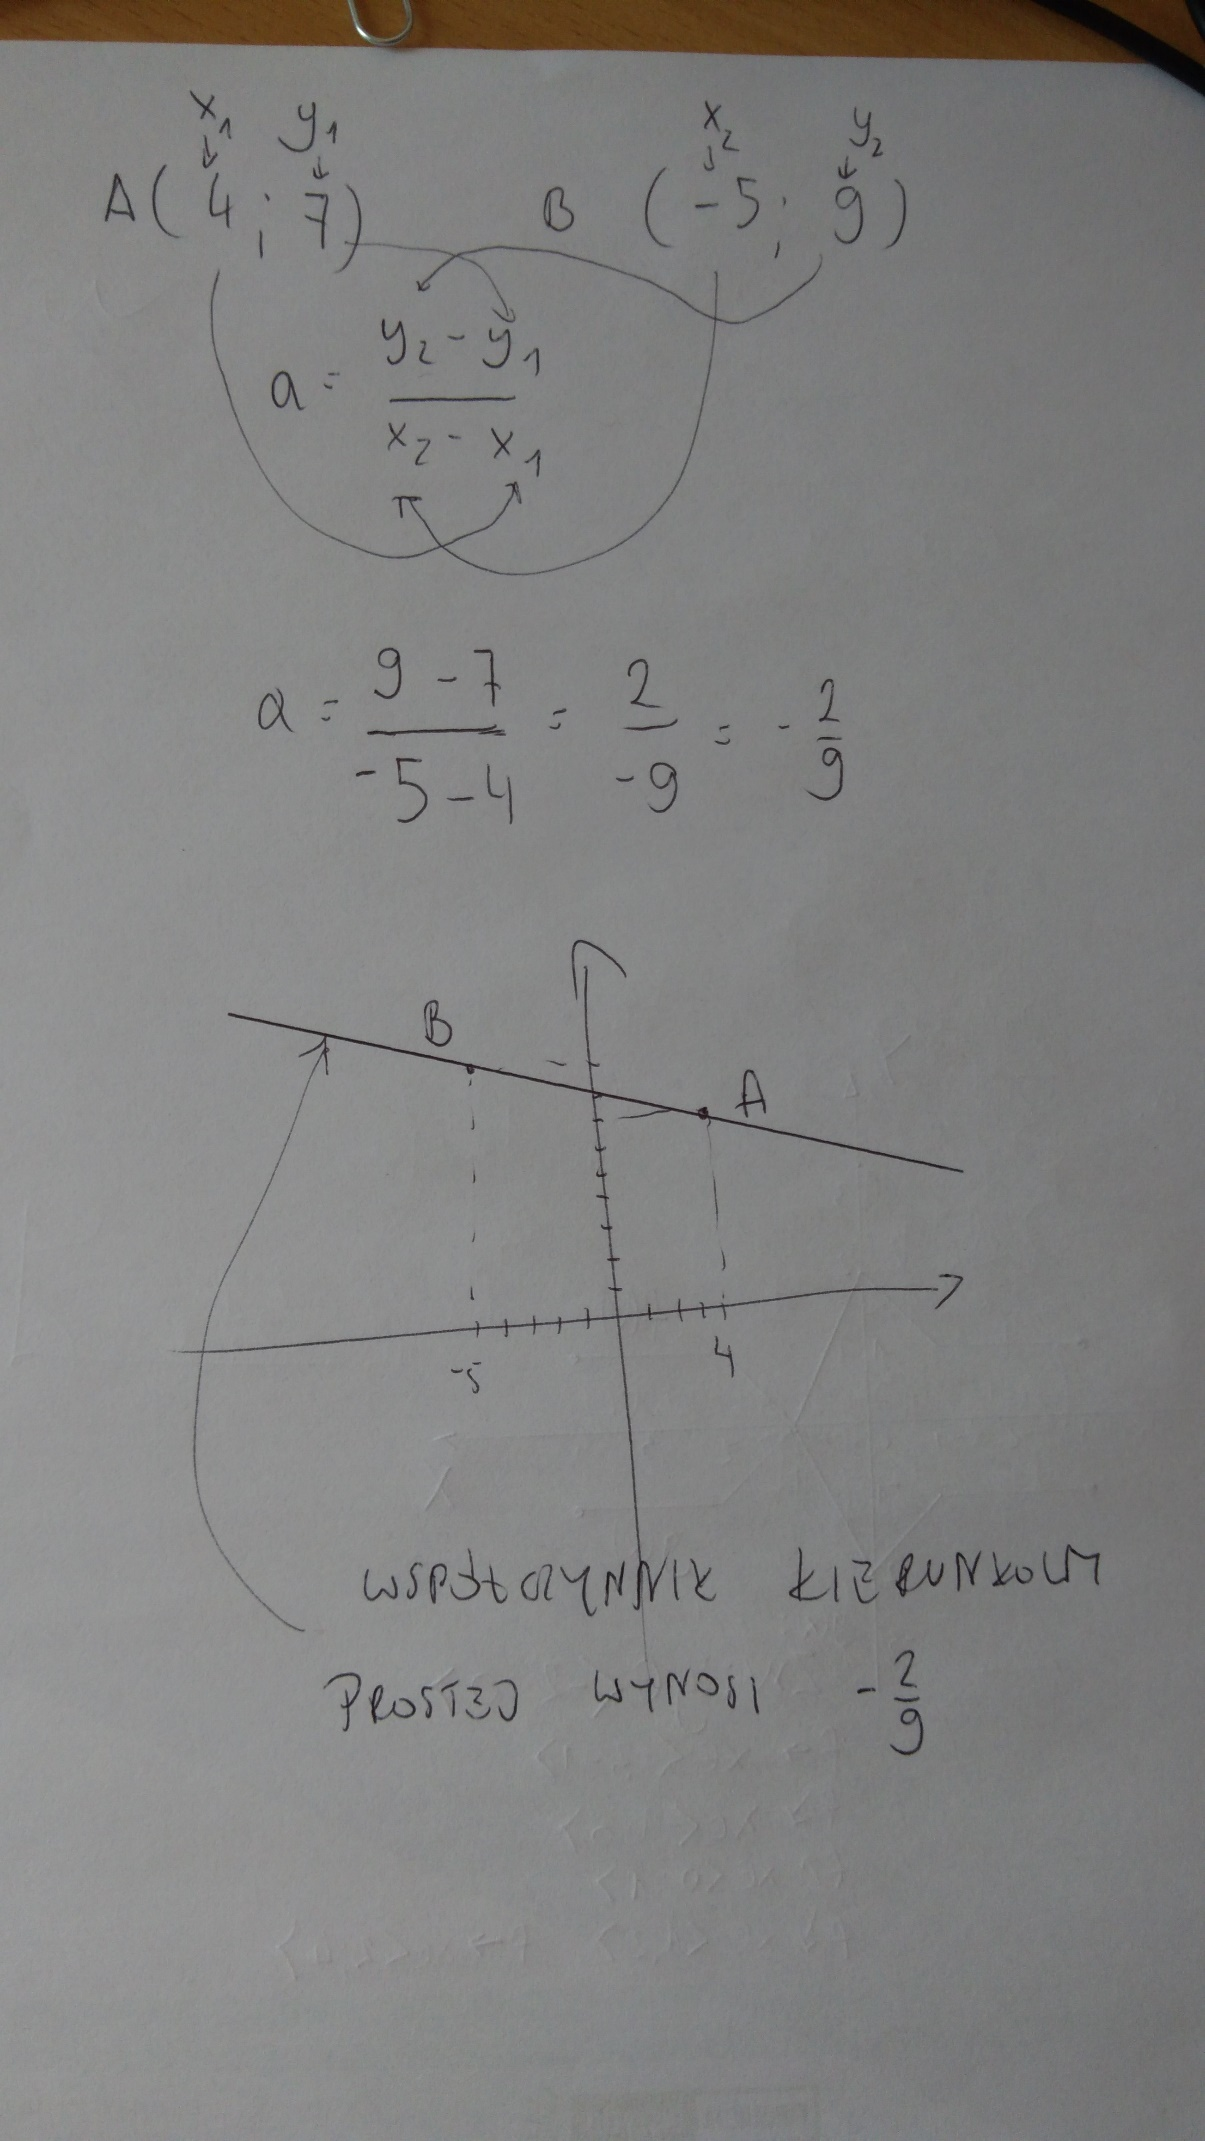 x₁ y₁ x₂ y₂
A(4; 7) B (-5; 9)
a = (y₂ - y₁)/(x₂ - x₁)
a = (9 - 7)/(-5 - 4) = 2/-9 = -2/9
B
A
-5 4
WSPÓŁCZYNNIK KIERUNKOWY
PROSTEJ WYNOSI -2/9